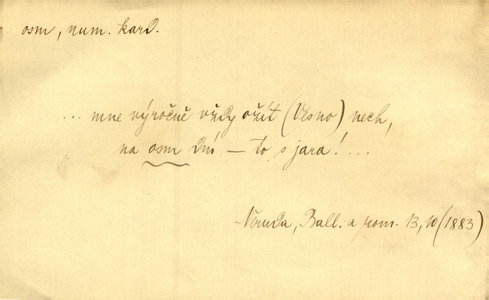 osm, num. kard.
... mne výročně vždy ožít (Vesno) nech,
na osm dní — to s jara! ...
Neruda, Ball. a rom. 13, 10 (1883)